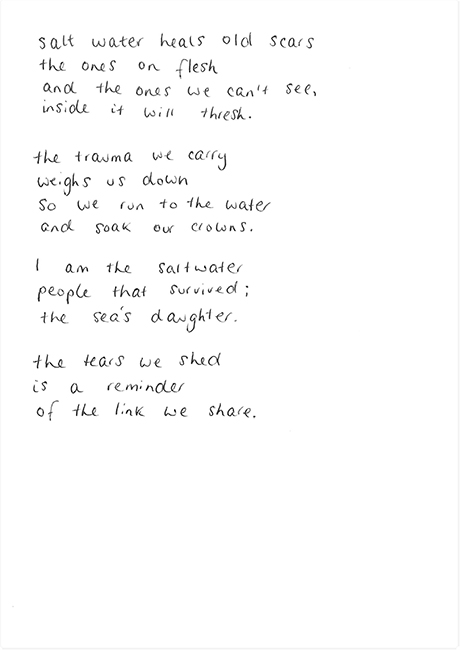 salt water heals old scars
the ones on flesh
and the ones we can't see,
inside it will thresh.
the trauma we carry
weighs us down
so we run to the water
and soak our crowns.
I am the saltwater
people that survived;
the sea's daughter.
the tears we shed
is a reminder
of the link we share.